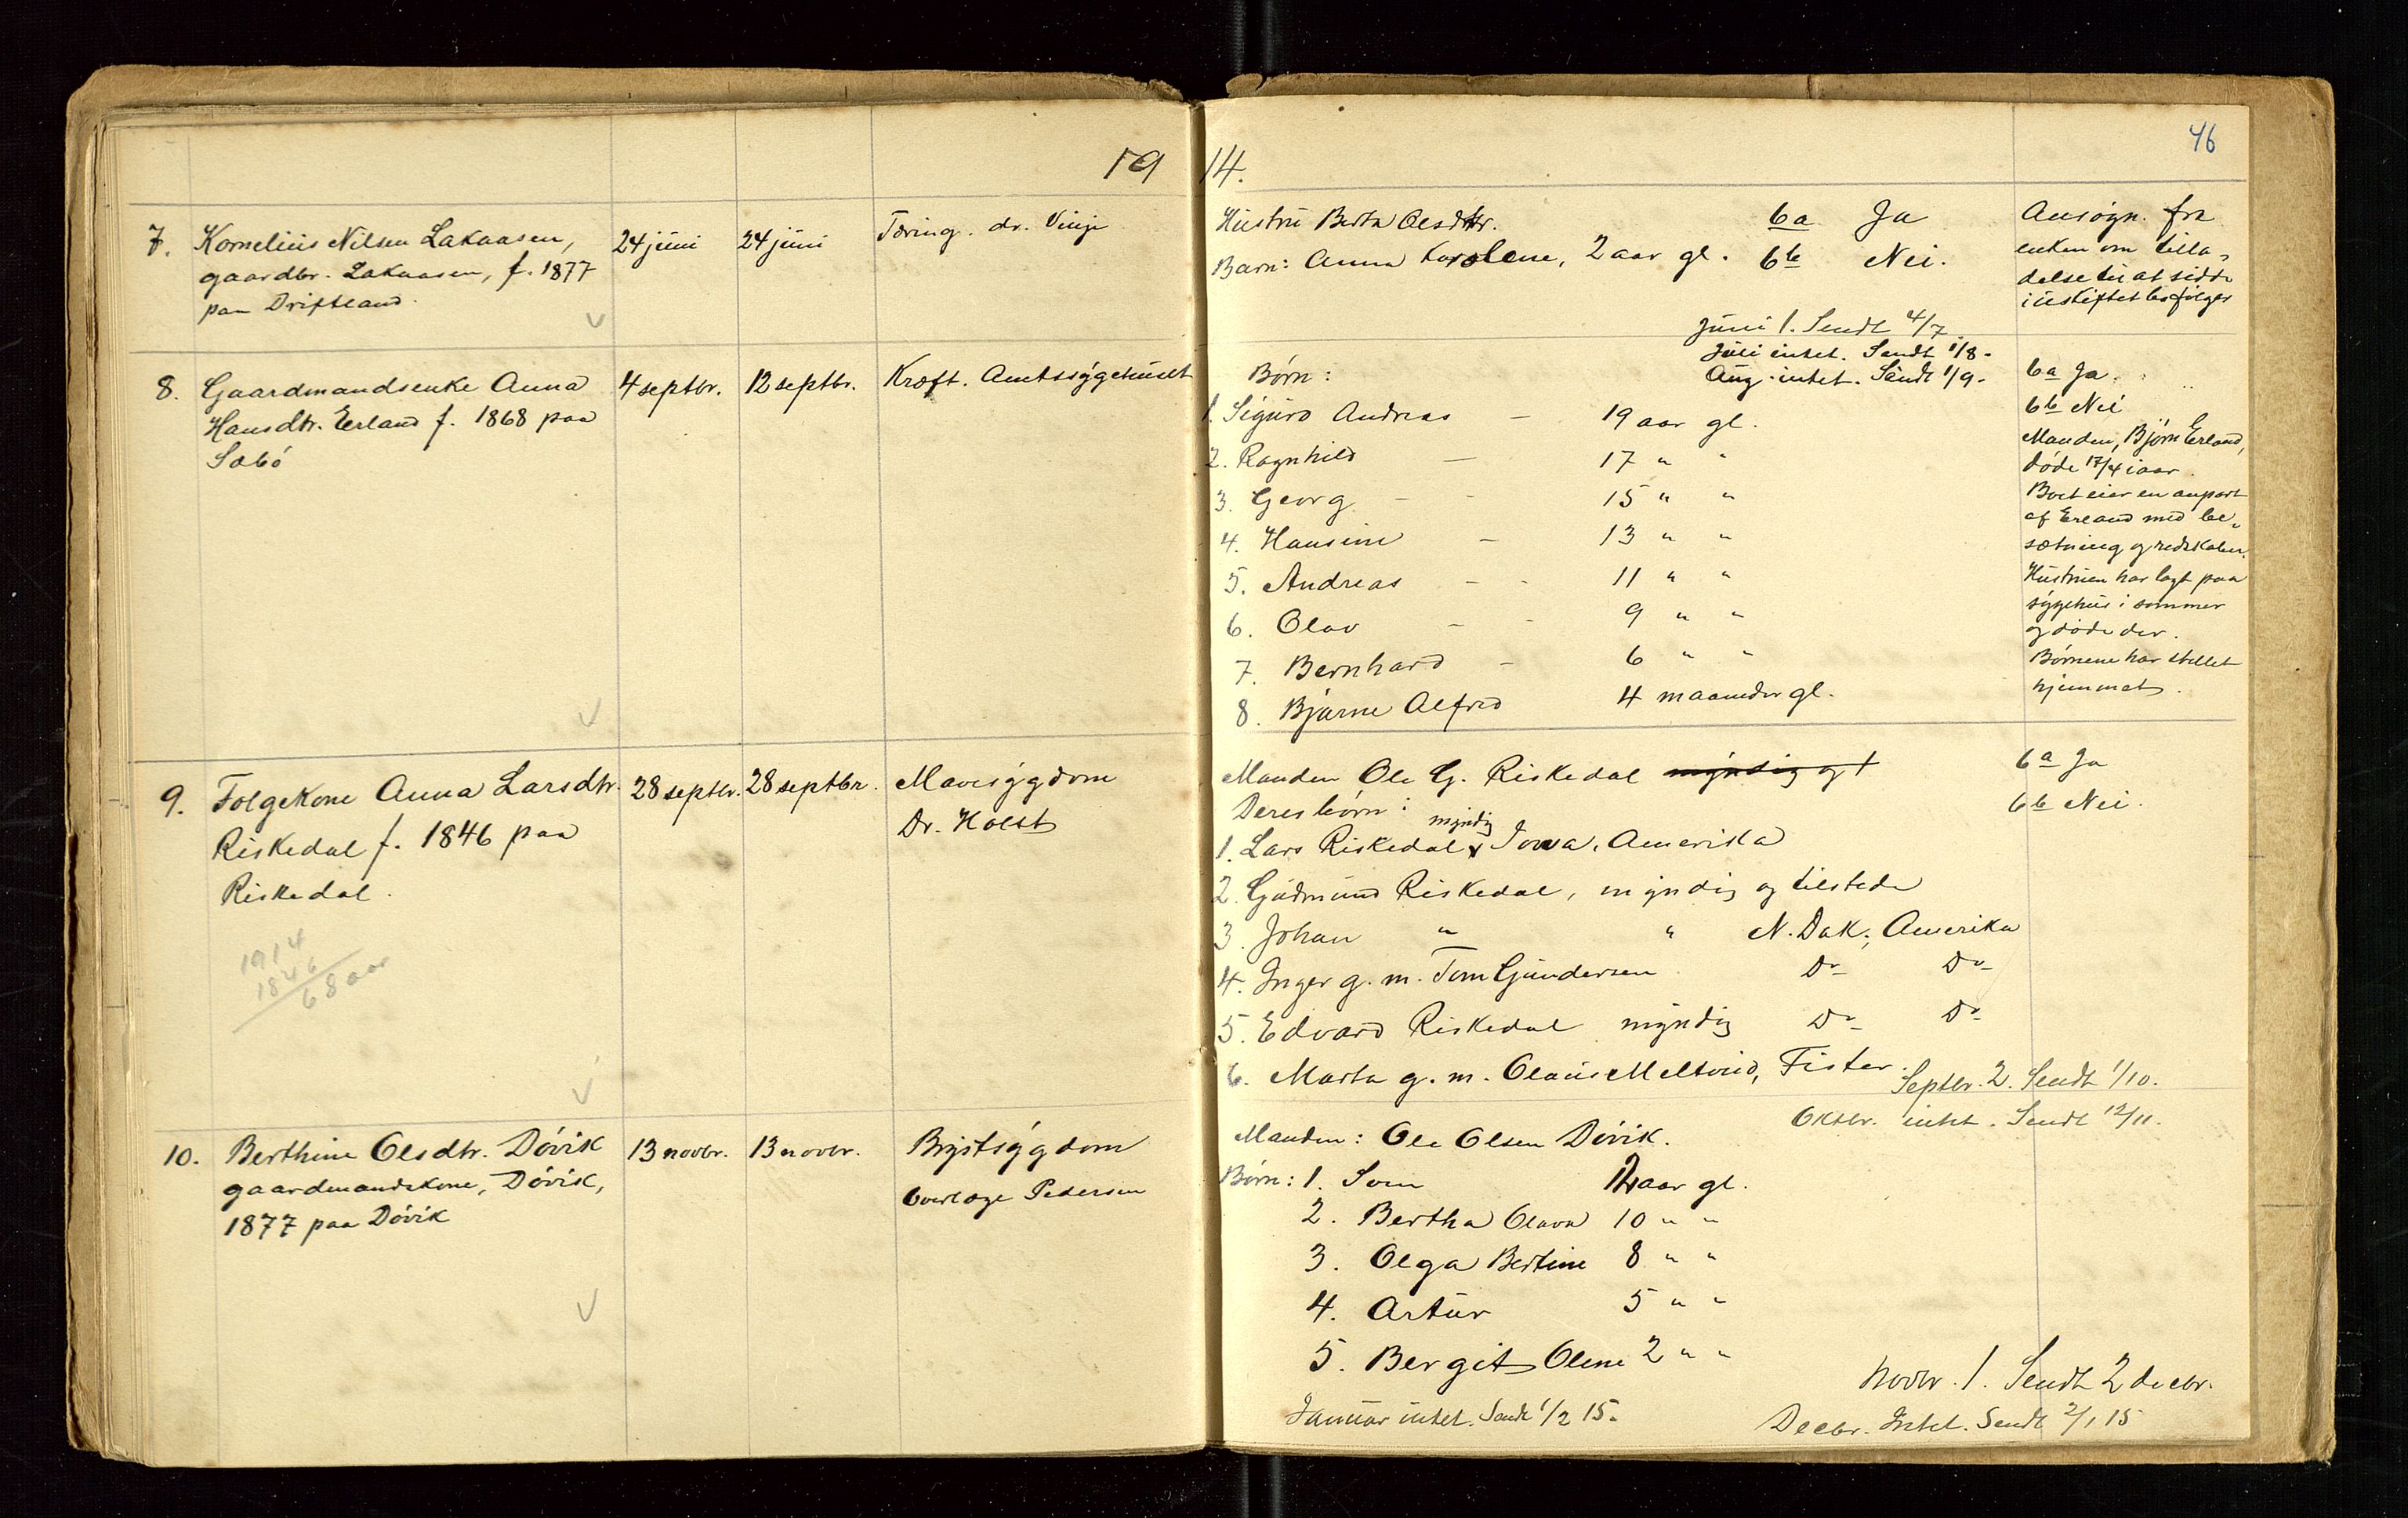 1914.
46
7. Kornelius Nilsen Lakaasen,
gaardbr. Lakaasen, f. 1877
paa Driftland.
24 juni
24 juni
Tæring. dr. Vinje
Hustru Berta Olsdtr.
Barn: Anna Karolene, 2 aar gl.
6a Ja
6b Nei.
Ansøgn. fra
enken om tilla-
delse til at sidde
i uskiftet bo følger
Juni 1. Sendt 4/7.
Juli intet. Sendt 1/8.
Aug. intet. Sendt 1/9.
8. Gaardmandsenke Anna
Hansdtr. Erland f. 1868 paa
Sabø
4 septbr.
12 septbr.
Kræft. Amtssygehuset
Børn:
1. Sigurd Andreas - 19 aar gl.
2. Ragnhild - 17 " "
3. Georg - - 15 " "
4. Hansine - 13 " "
5. Andreas - - 11 " "
6. Olav - - 9 " "
7. Bernhard - 6 " "
8. Bjarne Alfred 4 maaneder gl.
6a Ja.
6b Nei
Manden, Bjørn Erland,
døde 17/4 iaar.
Boet eier en anpart
af Erland med be-
sætning og redskaber.
Hustruen har lagt paa
sygehus i sommer
og døde der.
Børnene har stellet
hjemmet.
9. Folgekone Anna Larsdtr.
Riskedal f. 1846 paa
Riskedal.
1914
1846
68 aar
28 septbr.
28 septbr.
Mavesygdom
Dr. Holst
Manden Ole G. Riskedal myndig og t
Deres børn:
myndig
1. Lars Riskedal, Iowa, Amerika
2. Gudmund Riskedal, myndig og tilstede
3. Johan " " N. Dak., Amerika
4. Inger g. m. Tom Gundersen Do Do
5. Edvard Riskedal myndig Do Do
6. Marta g. m. Olaus Meltveid, Fister.
6a Ja
6b Nei.
Septbr. 2. Sendt 1/10.
Oktbr. intet. Sendt 12/11.
10. Berthine Olsdtr. Døvik
gaardmandskone, Døvik,
1877 paa Døvik
13 novbr.
13 novbr.
Brystsygdom
Overlæge Pedersen
Manden: Ole Olsen Døvik.
Børn: 1. Sven 12 aar gl.
2. Bertha Olava 10 " "
3. Olga Bertine 8 " "
4. Artur 5 " "
5. Bergit Oline 2 " "
Novbr. 1. Sendt 2 decbr.
Januar intet. Sendt 1/2 15.
Decbr. Intet. Sendt 2/1 15